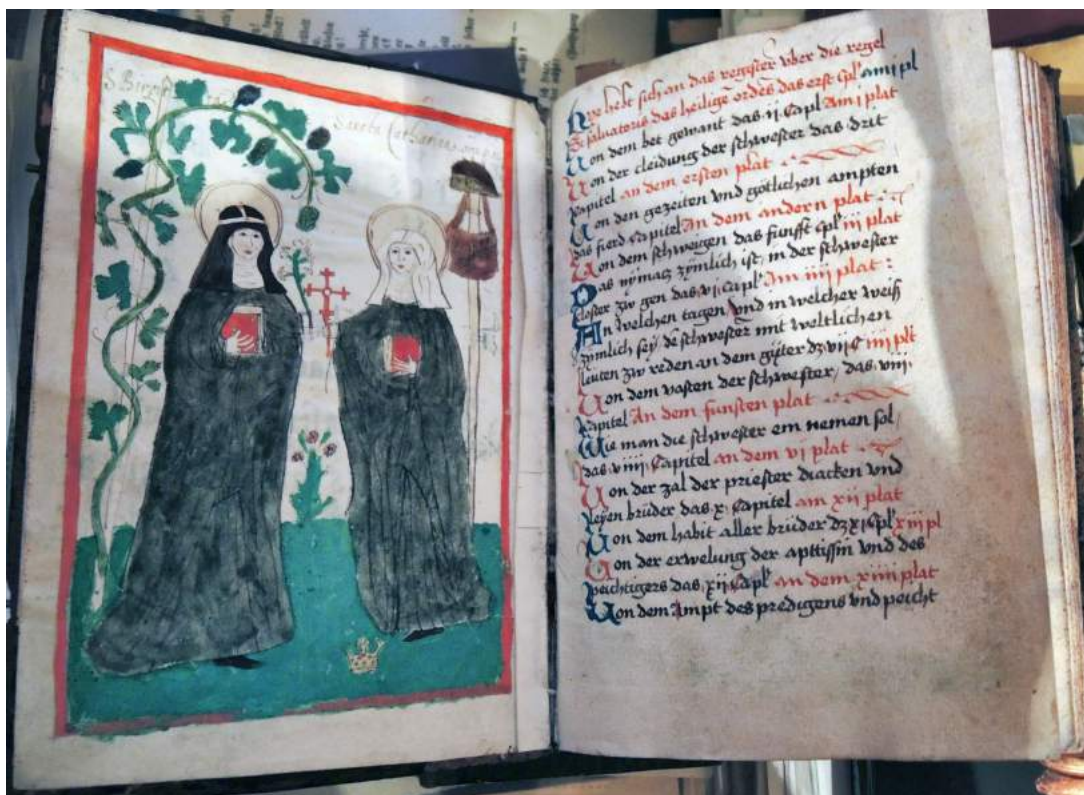 S Birgitta
Sancta Catharina
Hye hebt sich an das register vber die regel
Sc̄i saluatoris des heiligē ordēs das erst Cpl' am i pl
Uon dem bet gewant das ij Capl' Am i plat
Uon der cleidung der schwester das drit
Kapitel an dem ersten plat
Uon den gezeiten vnd götlichen ampten
das fierd Capitel An dem andern plat
Uon dem schweigen das funfft Cpl' iii plat
Das nÿmatz zÿmlich ist, in der schwester
closter zw gen das vi Capl' Am iiij plat :
An welchen tagen vnd in welcher weiß
zÿmlich seÿ dē schwester mit weltlichen
leuten zw reden an dem gÿter dz vij C iiij plt
Uon dem vasten der schwester / das viij
Kapitel An dem funften plat
Wie man die schwester ein nemen sol /
das viiij Capitel an dem vi plat
Uon der zal der priester diacken vnd
leyen brüder das x Capitel am xij plat
Uon dem habit aller brüder dz xi Cpl' xiij pl
Uon der erwelung der apttissin vnd des
peichtigers das xij Capl' an dem xiiij plat
Uon dem Ampt des predigens vnd peicht